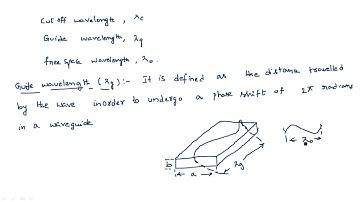 Cut off wavelength, λc
Guide wavelength, λg
free space wavelength, λo.
Guide wavelength (λg) :- It is defined as the distance travelled
by the wave inorder to undergo a phase shift of 2π radians
in a waveguide
b
a
λg
λo